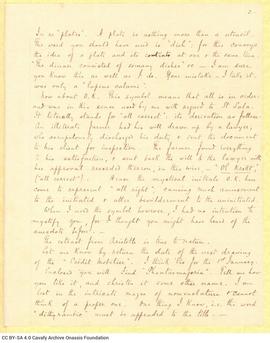 2.
In re "plates". A plate is nothing more than a utensil.
The word you should have used is "dish"; for this conveys
the idea of a plate and its contents at one & the same time.
"The dinner consisted of so many dishes" &c — I am sure
you know this as well as I do. Your mistake, I take it,
was only a "lapsus calami".
Now about O.K. This symbol means that all is in order,
and was in this sense used by me with regard to
It literally stands for "all correct"; its derivation as follows:
An illiterate farmer had his will drawn up by a lawyer,
who accomplished his duty & sent the document
to his client for inspection. The farmer found everything
to his satisfaction, & sent back the will to the lawyer with
his approval recorded thereon, in this wise, — "Ol Krect",
("all correct"). Hence the mystical initials O.K. have
come to represent "all right", causing much amusement
to the initiated & utter bewilderment to the uninitiated.
When I used the symbol however, I had no intention to
mystify you for I thought you might have heard of the
anecdote before. —
The extract from Aristotle is true to nature.
Let me know by return the date of the next drawing
of the "Crédit". I think it is for the 1st January.
Enclosed you will find "Phantasmagoria". Tell me how
you like it, and christen it some other name. I am
lost in the intricate mazes of nomenclature & cannot
think of a proper one. One thing I know, i.e. the word
"dithyrambic" must be appended to the title. —
CC BY-SA 4.0 Cavafy Archive Onassis Foundation